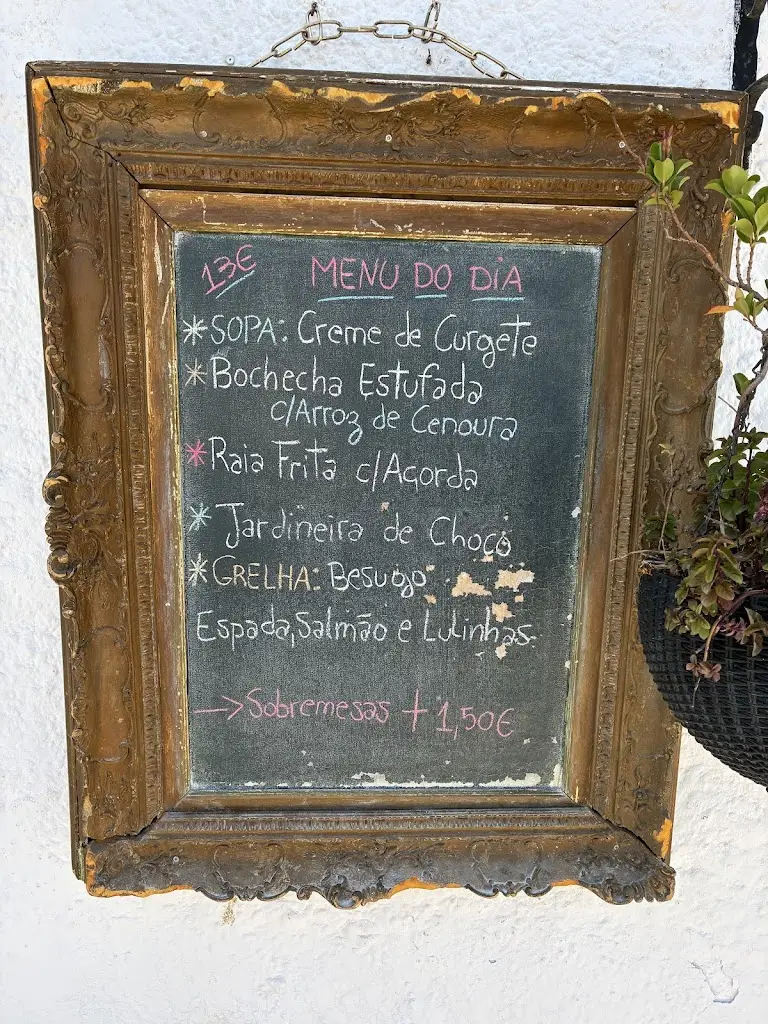 13€ MENU DO DIA
*SOPA: Creme de Curgete
*Bochecha Estufada
c/Arroz de Cenoura
*Raia Frita c/Açorda
*Jardineira de Choco
*GRELHA: Besugo
Espada, Salmão e Lulinhas
-> Sobremesas + 1,50€